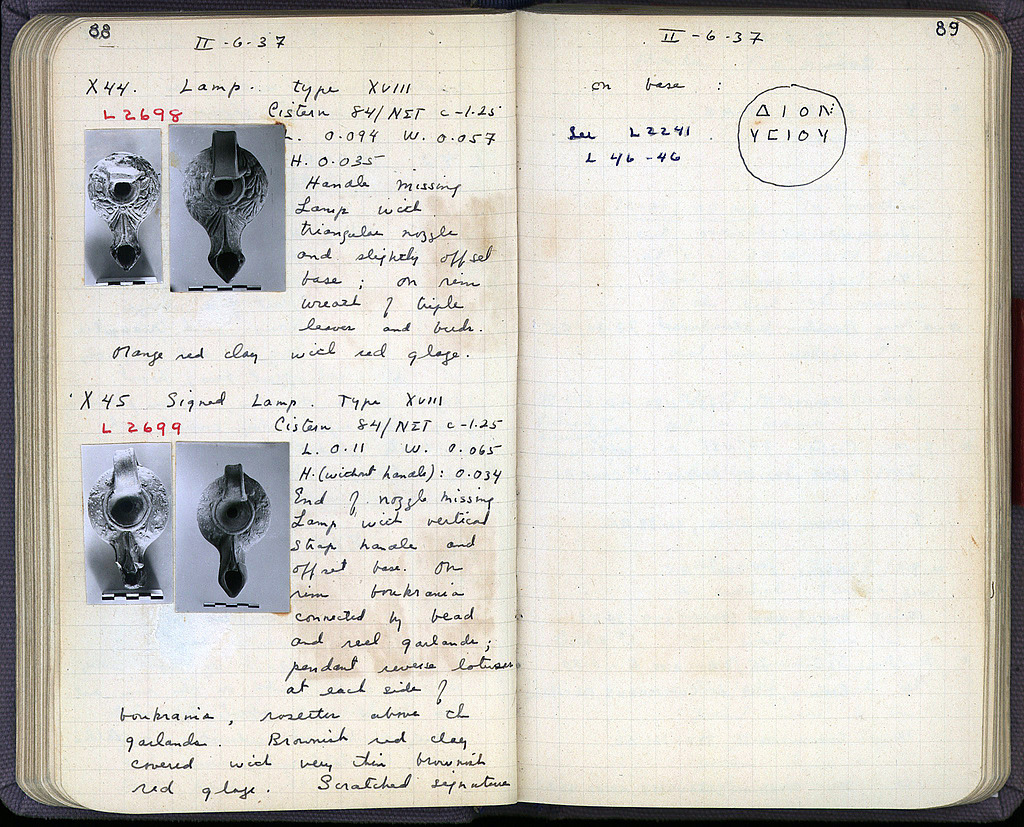 88
II-6-37
X44. Lamp. type XVIII
L 2698
Cistern 84/ΝΣΤ c-1.25
L. 0.094 W. 0.057
H. 0.035
Handle missing
Lamp with
triangular nozzle
and slightly offset
base; on rim
wreath of triple
leaves and buds.
Orange red clay with red glaze.
X45 Signed Lamp. Type XVIII
L 2699
Cistern 84/ΝΣΤ c-1.25
L. 0.11 W. 0.065
H. (without handle): 0.034
End of nozzle missing
Lamp with vertical
strap handle and
offset base. On
rim boukrania
connected by bead
and reel garlands;
pendant reverse lotuses
at each side of
boukrania, rosettes above th
garlands. Brownish red clay
covered with very thin brownish
red glaze. Scratched signature
89
II-6-37
on base :
ΔΙΟΝ
ΥΣΙΟΥ
See L2241.
L 46-46